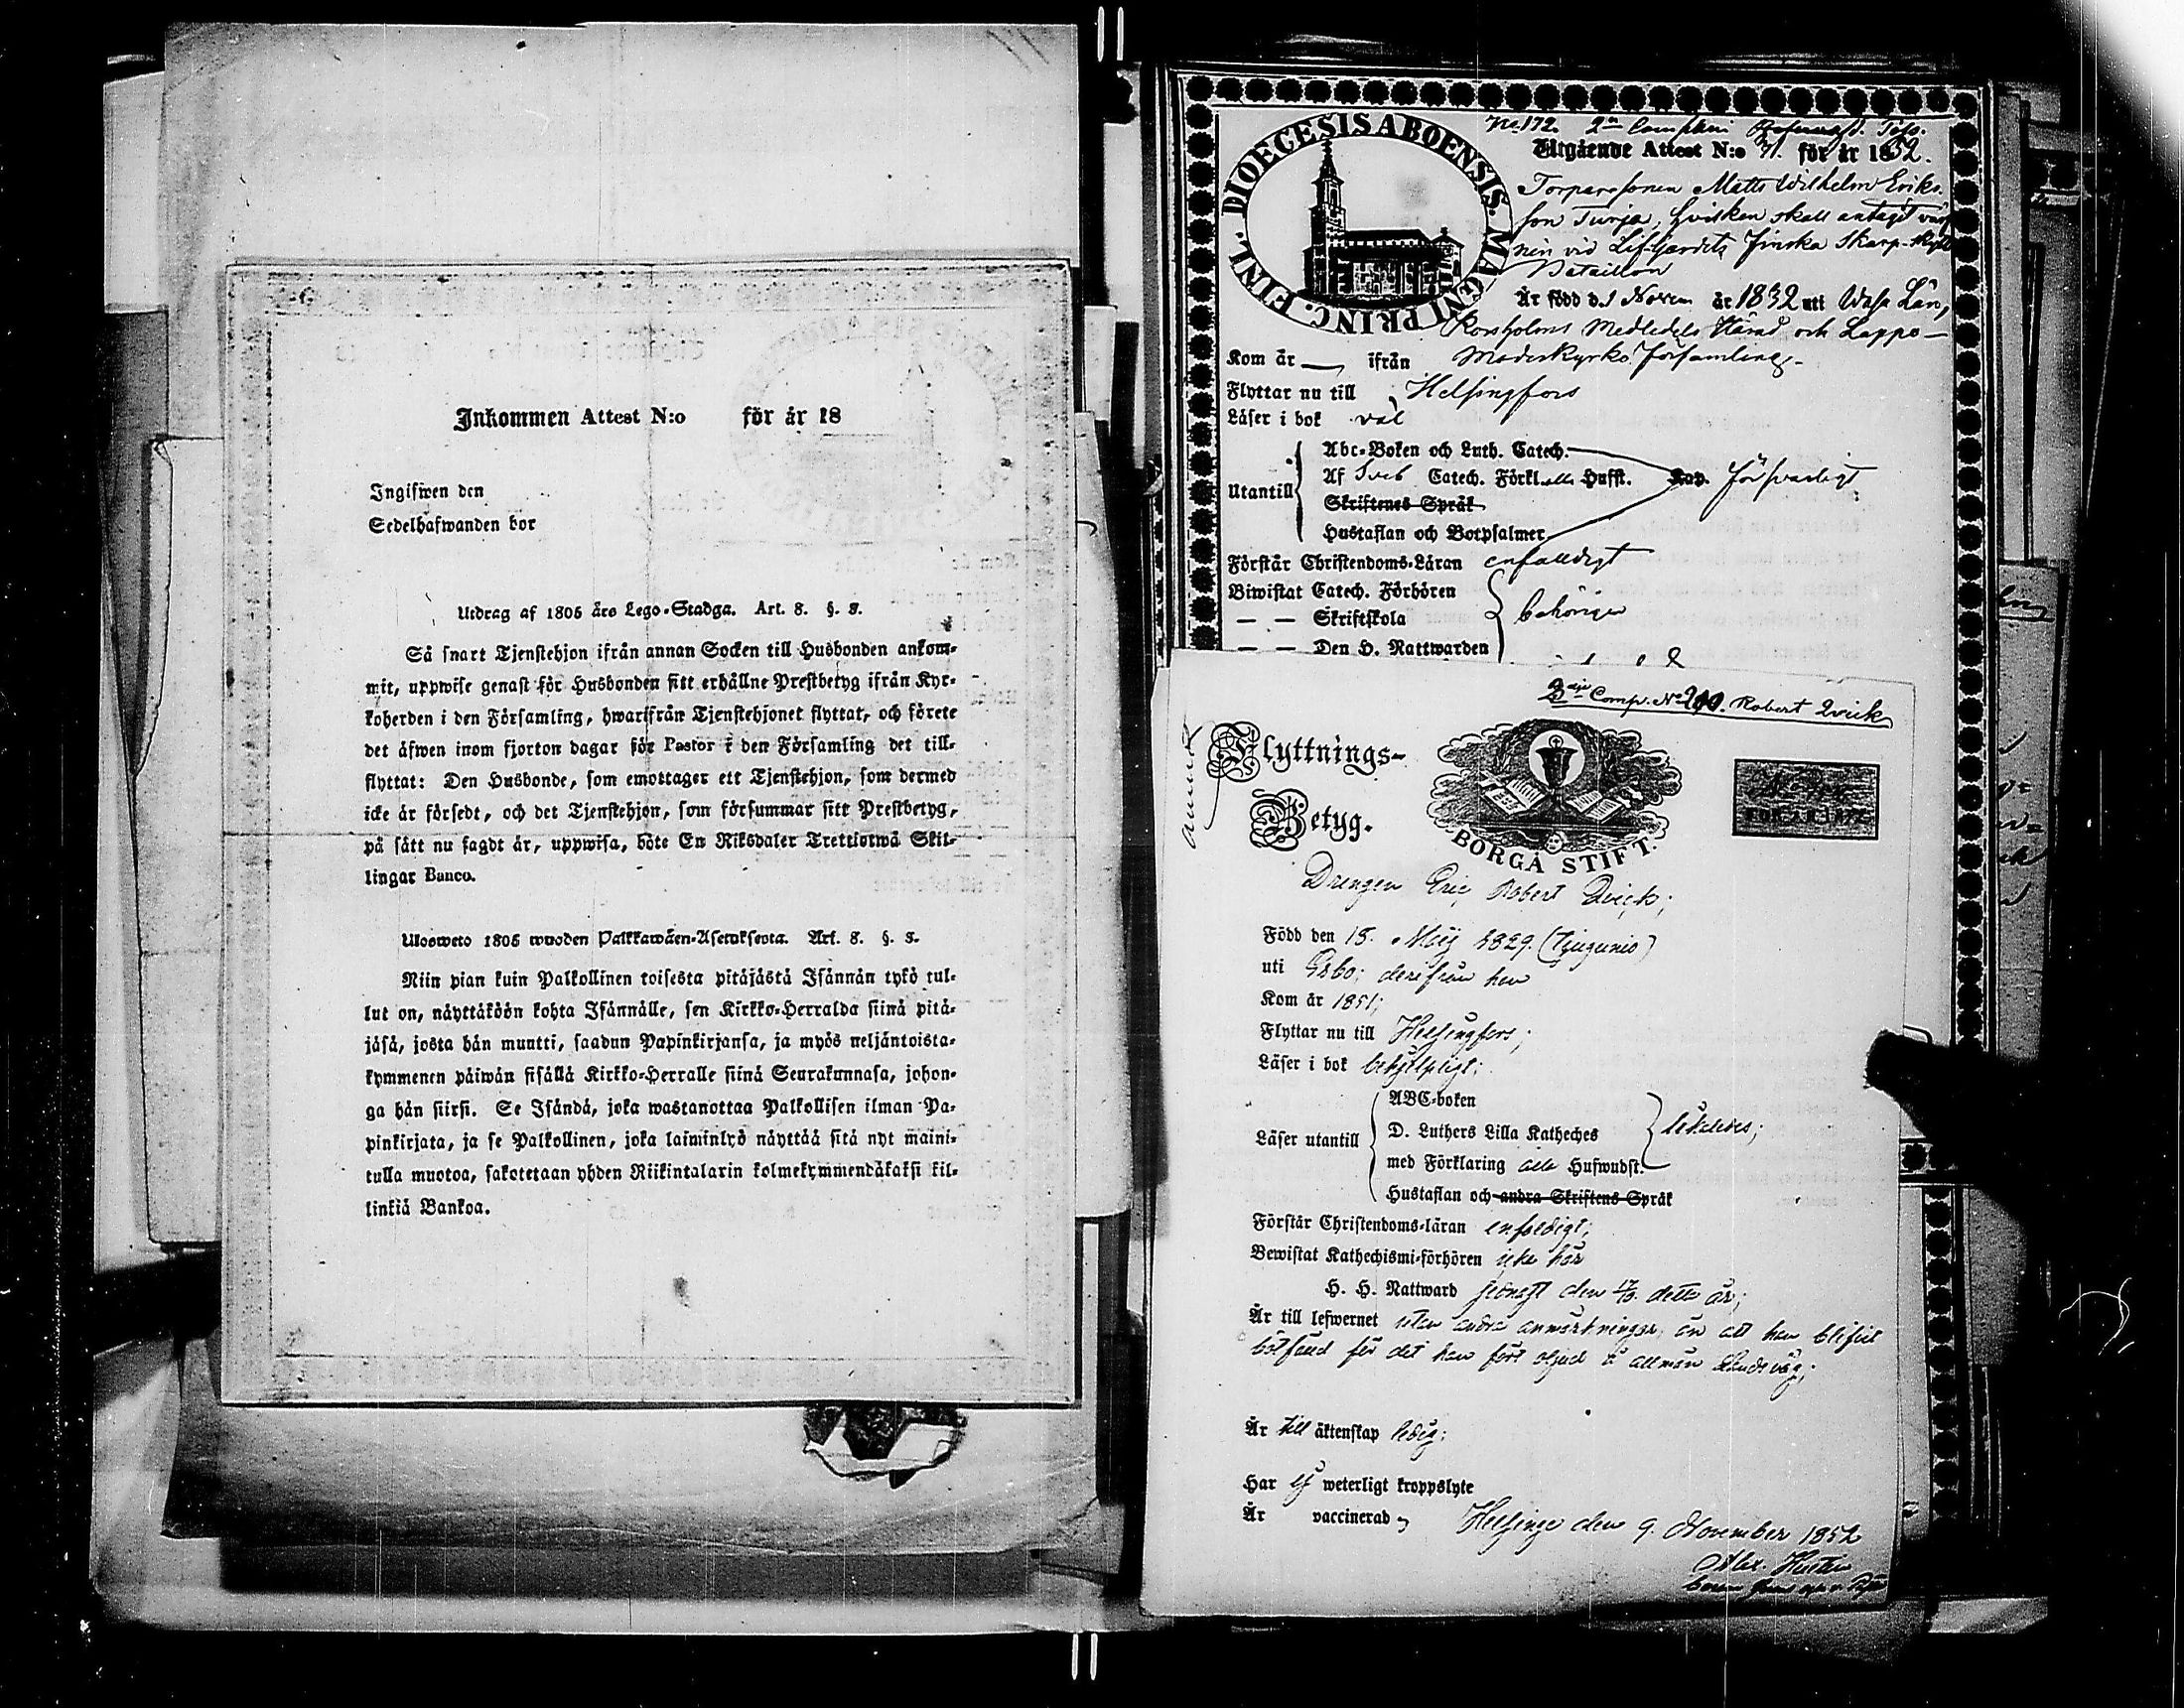 Inkommen Attest N:o för år 18
Ingifwen den
Sedelhafwanden bor
Utdrag af 1805 års Lego-Stadga. Art. 8. §. 8.
Så snart Tjenstehjon ifrån annan Socken till Husbonden ankom-
mit, uppwise genast för Husbonden sitt erhållne Prestbetyg ifrån Kyr-
koherden i den Församling, hwarifrån Tjenstehjonet flyttat, och förete
det äfwen inom fjorton dagar för Pastor i den Församling det till-
flyttat: Den Husbonde, som emottager ett Tjenstehjon, som dermed
icke är försedt, och det Tjenstehjon, som försummar sitt Prestbetyg,
på sätt nu sagdt är, uppwisa, böte En Riksdaler Trettiotwå Skil-
lingar Banco.
Ulosweto 1805 wuoden Palkkawäen-Asetuksesta. Art. 8. §. 8.
Niin pian kuin Palkollinen toisesta pitäjästä Isännän tykö tul-
lut on, näyttäköön kohta Isännälle, sen Kirkko-Herralda siinä pitä-
jäsä, josta hän muutti, saadun Papinkirjansa, ja myös neljäntoista-
kymmenen päiwän sisällä Kirkko-Herralle siinä Seurakunnasa, johon-
ga hän siirsi. Se Isändä, joka wastanottaa Palkollisen ilman Pa-
pinkirjata, ja se Palkollinen, joka laiminlyö näyttää sitä nyt maini-
tulla muotoa, sakotetaan yhden Riikintalarin kolmekymmendäkaksi kil-
linkiä Bankoa.
No 172. 2n
DIOECESIS ABOENSIS. MAGNI PRINC. FINL.
Utgående Attest N:o 71. för år 1852.
Torparesonen Matts Wilhelm Eriks-
son Turja, hvilken skall antagit värf-
nin vid Lif-Gardets Finska Skarp-skytte
Bataillon
Är född d. 1 Novem år 1832 uti Wasa Län,
Korsholms Medledels Härad och Lappo
Kom år — ifrån Moderkyrko församling.
Flyttar nu till Helsingfors
Läser i bok väl
Utantill
Abc-Boken och Luth. Catech.
Af Sveb Catech. Förkl. alla Hufst. Kap. försvarligt
Skriftenes Språk
Hustaflan och Botpsalmer
Förstår Christendoms-Läran enfaldigt
Biwistat Catech. Förhören
— — Skriftskola behörigen
— — Den H. Nattwarden
Comp. No 200. Robert Qvick
Flyttnings-
Betyg.
BORGÅ STIFT.
Drengen Eric Robert Qvick;
Född den 18. Maij 1829. (tjugunio)
uti Esbo; derifrån han
Kom år 1851;
Flyttar nu till Helsingfors;
Läser i bok behjelpligt;
Läser utantill
ABC-boken
D. Luthers Lilla Katheches likaledes;
med Förklaring alla Hufwudst.
Hustaflan och andra Skriftens Språk
Förstår Christendoms-läran enfaldigt;
Bewistat Kathechismi-förhören icke här
H. H. Nattward sednast den detta år;
Är till lefwernet utan andra anmärkningar, än att han blifvit
botfäld för det han fört oljud å allmän Landsväg;
Är till äktenskap ledig;
Har ej weterligt kroppslyte
Är vaccinerad
Helsinge den 9. November 1852
Alex.